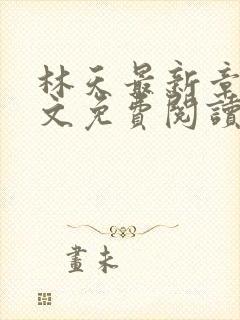 林天最新章
文免費閱讀
畫未